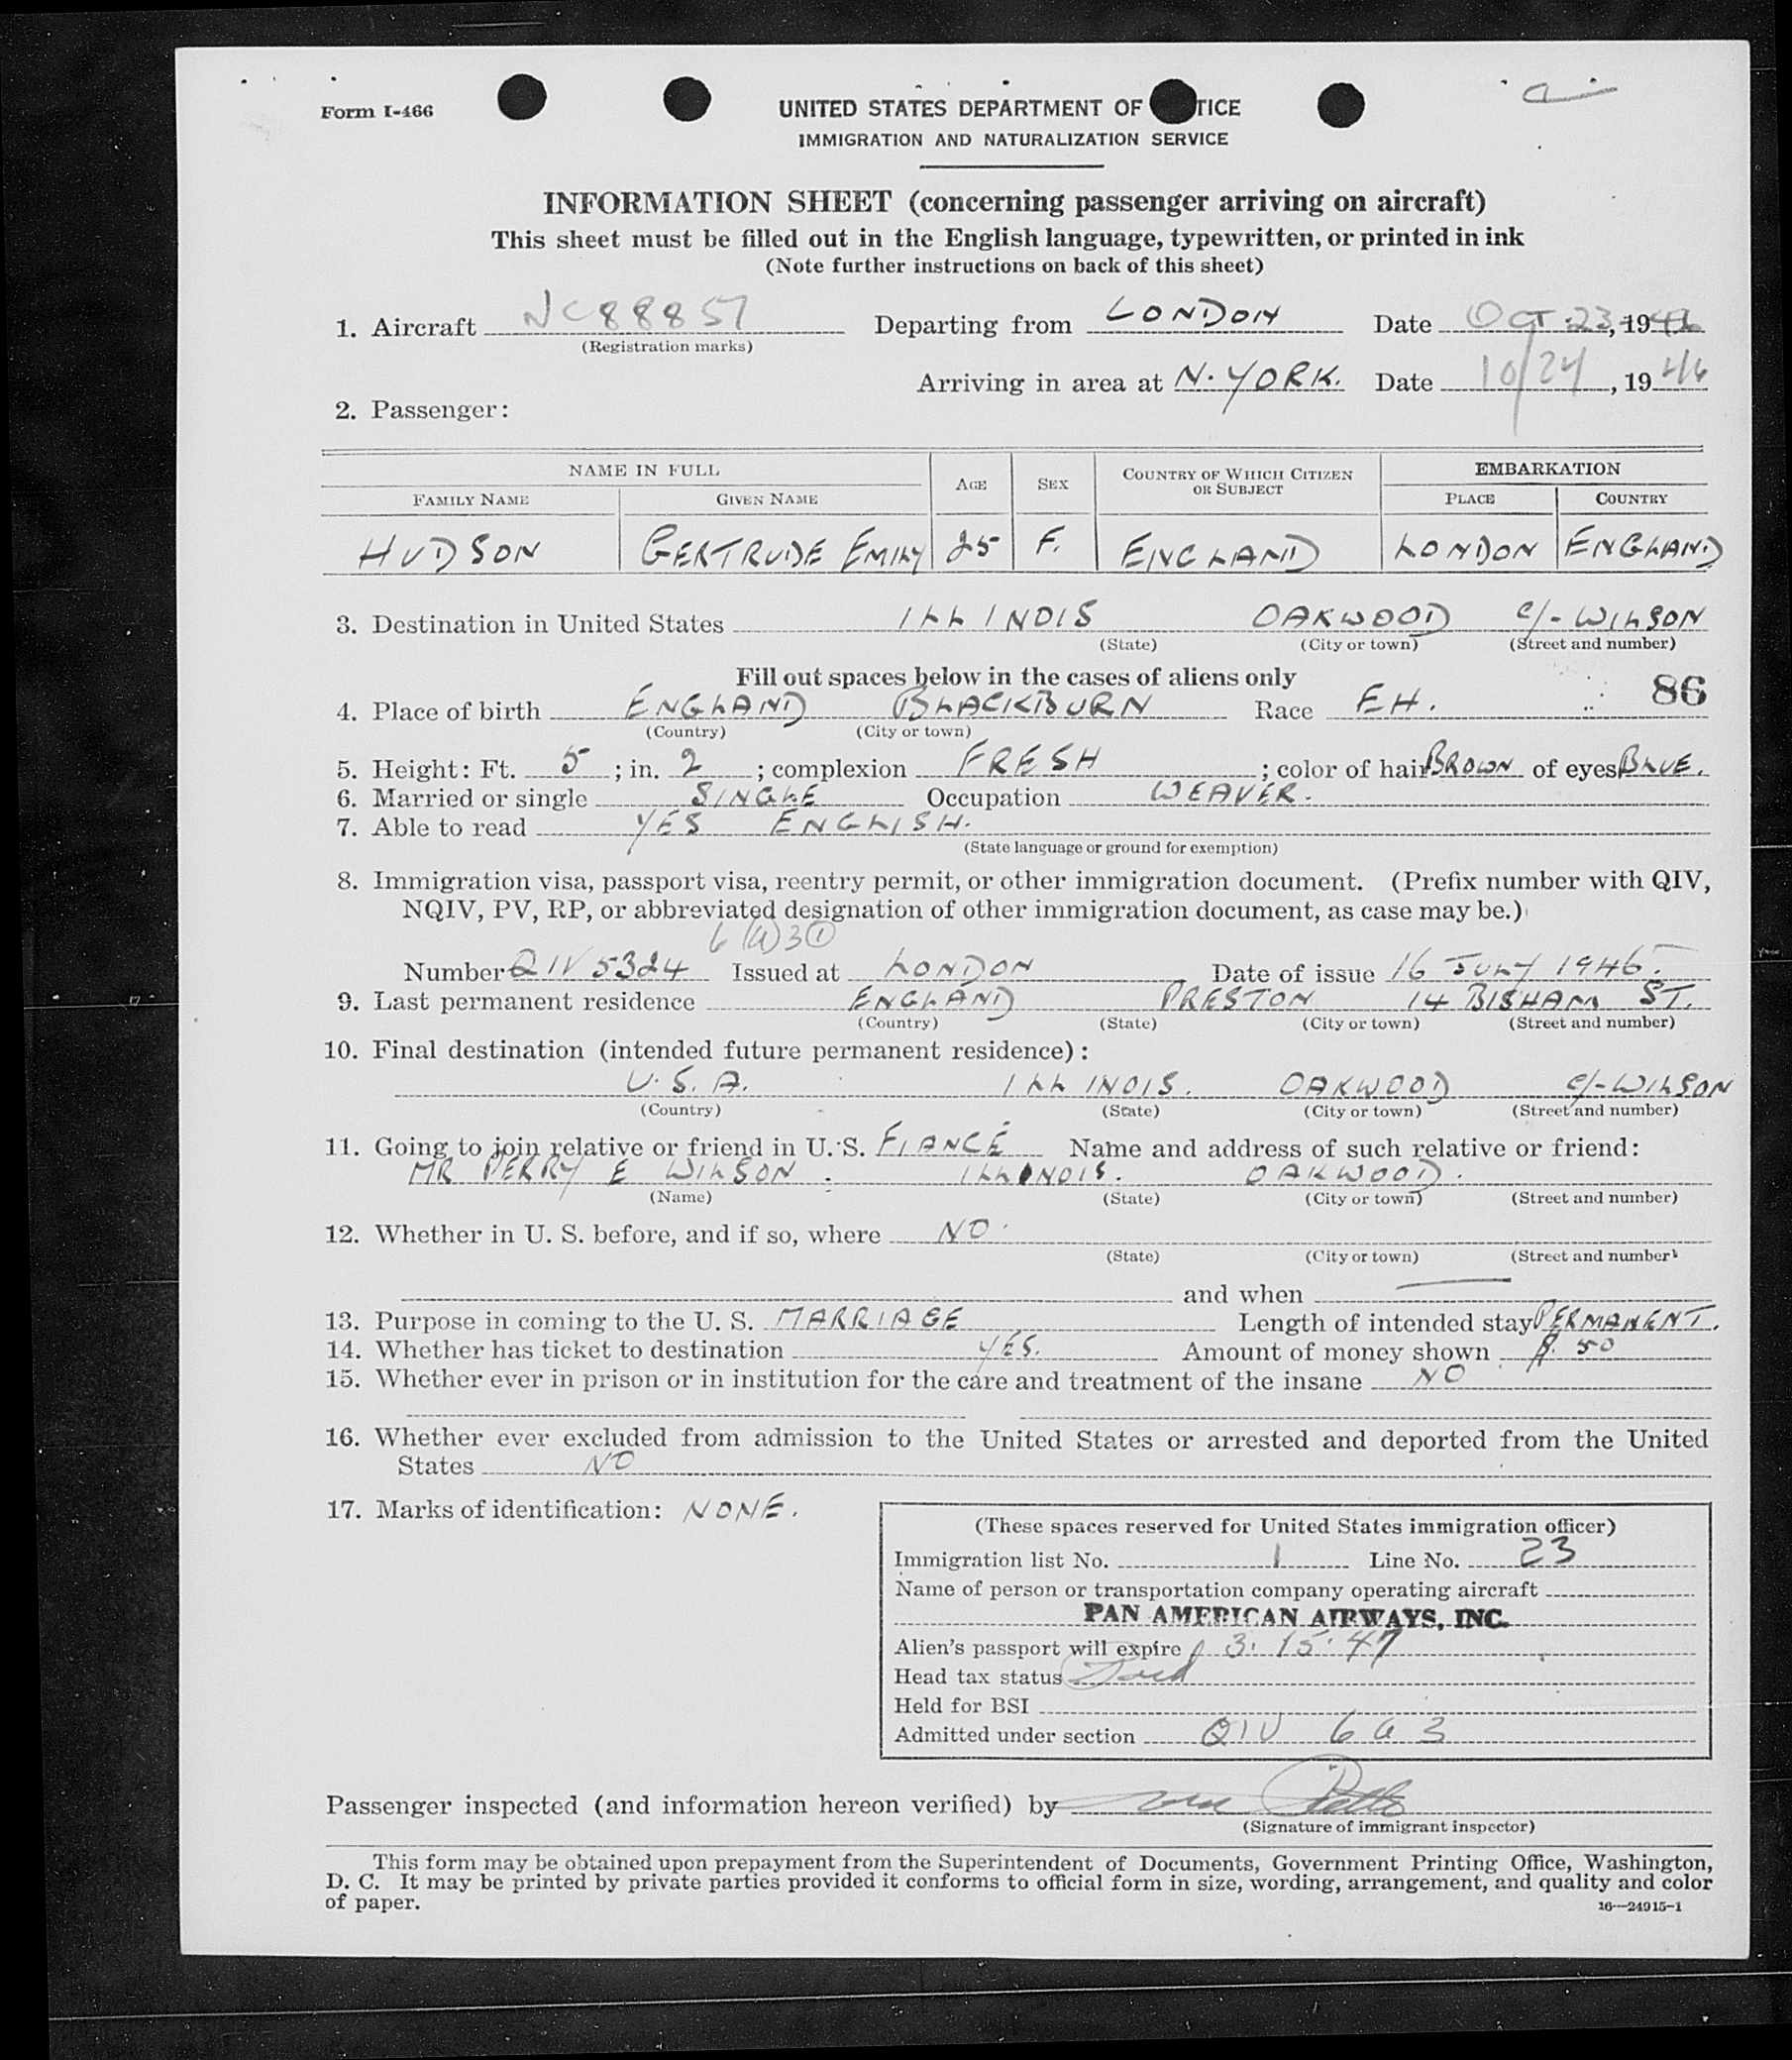 Form I-466
UNITED STATES DEPARTMENT OF TICE
IMMIGRATION AND NATURALIZATION SERVICE
INFORMATION SHEET (concerning passenger arriving on aircraft)
This sheet must be filled out in the English language, typewritten, or printed in ink
(Note further instructions on back of this sheet)
1. Aircraft NC88857 Departing from LONDON Date OCT 23, 1946
(Registration marks)
Arriving in area at N. YORK. Date 10/24, 1946
2. Passenger:
NAME IN FULL AGE SEX COUNTRY OF WHICH CITIZEN OR SUBJECT EMBARKATION
FAMILY NAME GIVEN NAME PLACE COUNTRY
HUDSON GERTRUDE EMILY 25 F. ENGLAND LONDON ENGLAND
3. Destination in United States ILLINOIS OAKWOOD C/- WILSON
(State) (City or town) (Street and number)
Fill out spaces below in the cases of aliens only
86
4. Place of birth ENGLAND BLACKBURN Race EH.
(Country) (City or town)
5. Height: Ft. 5; in. 2; complexion FRESH; color of hair BROWN of eyes BLUE.
6. Married or single SINGLE Occupation WEAVER.
7. Able to read YES ENGLISH.
(State language or ground for exemption)
8. Immigration visa, passport visa, reentry permit, or other immigration document. (Prefix number with QIV,
NQIV, PV, RP, or abbreviated designation of other immigration document, as case may be.)
6 (a) 3 (1)
Number QIV 5324 Issued at LONDON Date of issue 16 JULY 1946.
9. Last permanent residence ENGLAND PRESTON 14 BISHAM ST.
(Country) (State) (City or town) (Street and number)
10. Final destination (intended future permanent residence):
U.S.A. ILLINOIS. OAKWOOD C/- WILSON
(Country) (State) (City or town) (Street and number)
11. Going to join relative or friend in U. S. FIANCÉ Name and address of such relative or friend:
MR PERRY E WILSON. ILLINOIS. OAKWOOD.
(Name) (State) (City or town) (Street and number)
12. Whether in U. S. before, and if so, where NO.
(State) (City or town) (Street and number)
and when —
13. Purpose in coming to the U. S. MARRIAGE Length of intended stay PERMANENT.
14. Whether has ticket to destination YES. Amount of money shown $ 50
15. Whether ever in prison or in institution for the care and treatment of the insane NO
16. Whether ever excluded from admission to the United States or arrested and deported from the United
States NO
17. Marks of identification: NONE.
(These spaces reserved for United States immigration officer)
Immigration list No. 1 Line No. 23
Name of person or transportation company operating aircraft
PAN AMERICAN AIRWAYS, INC.
Alien's passport will expire 3.15.47
Head tax status
Held for BSI
Admitted under section QIV 6 a 3
Passenger inspected (and information hereon verified) by
(Signature of immigrant inspector)
This form may be obtained upon prepayment from the Superintendent of Documents, Government Printing Office, Washington,
D. C. It may be printed by private parties provided it conforms to official form in size, wording, arrangement, and quality and color
of paper.
16—24915-1